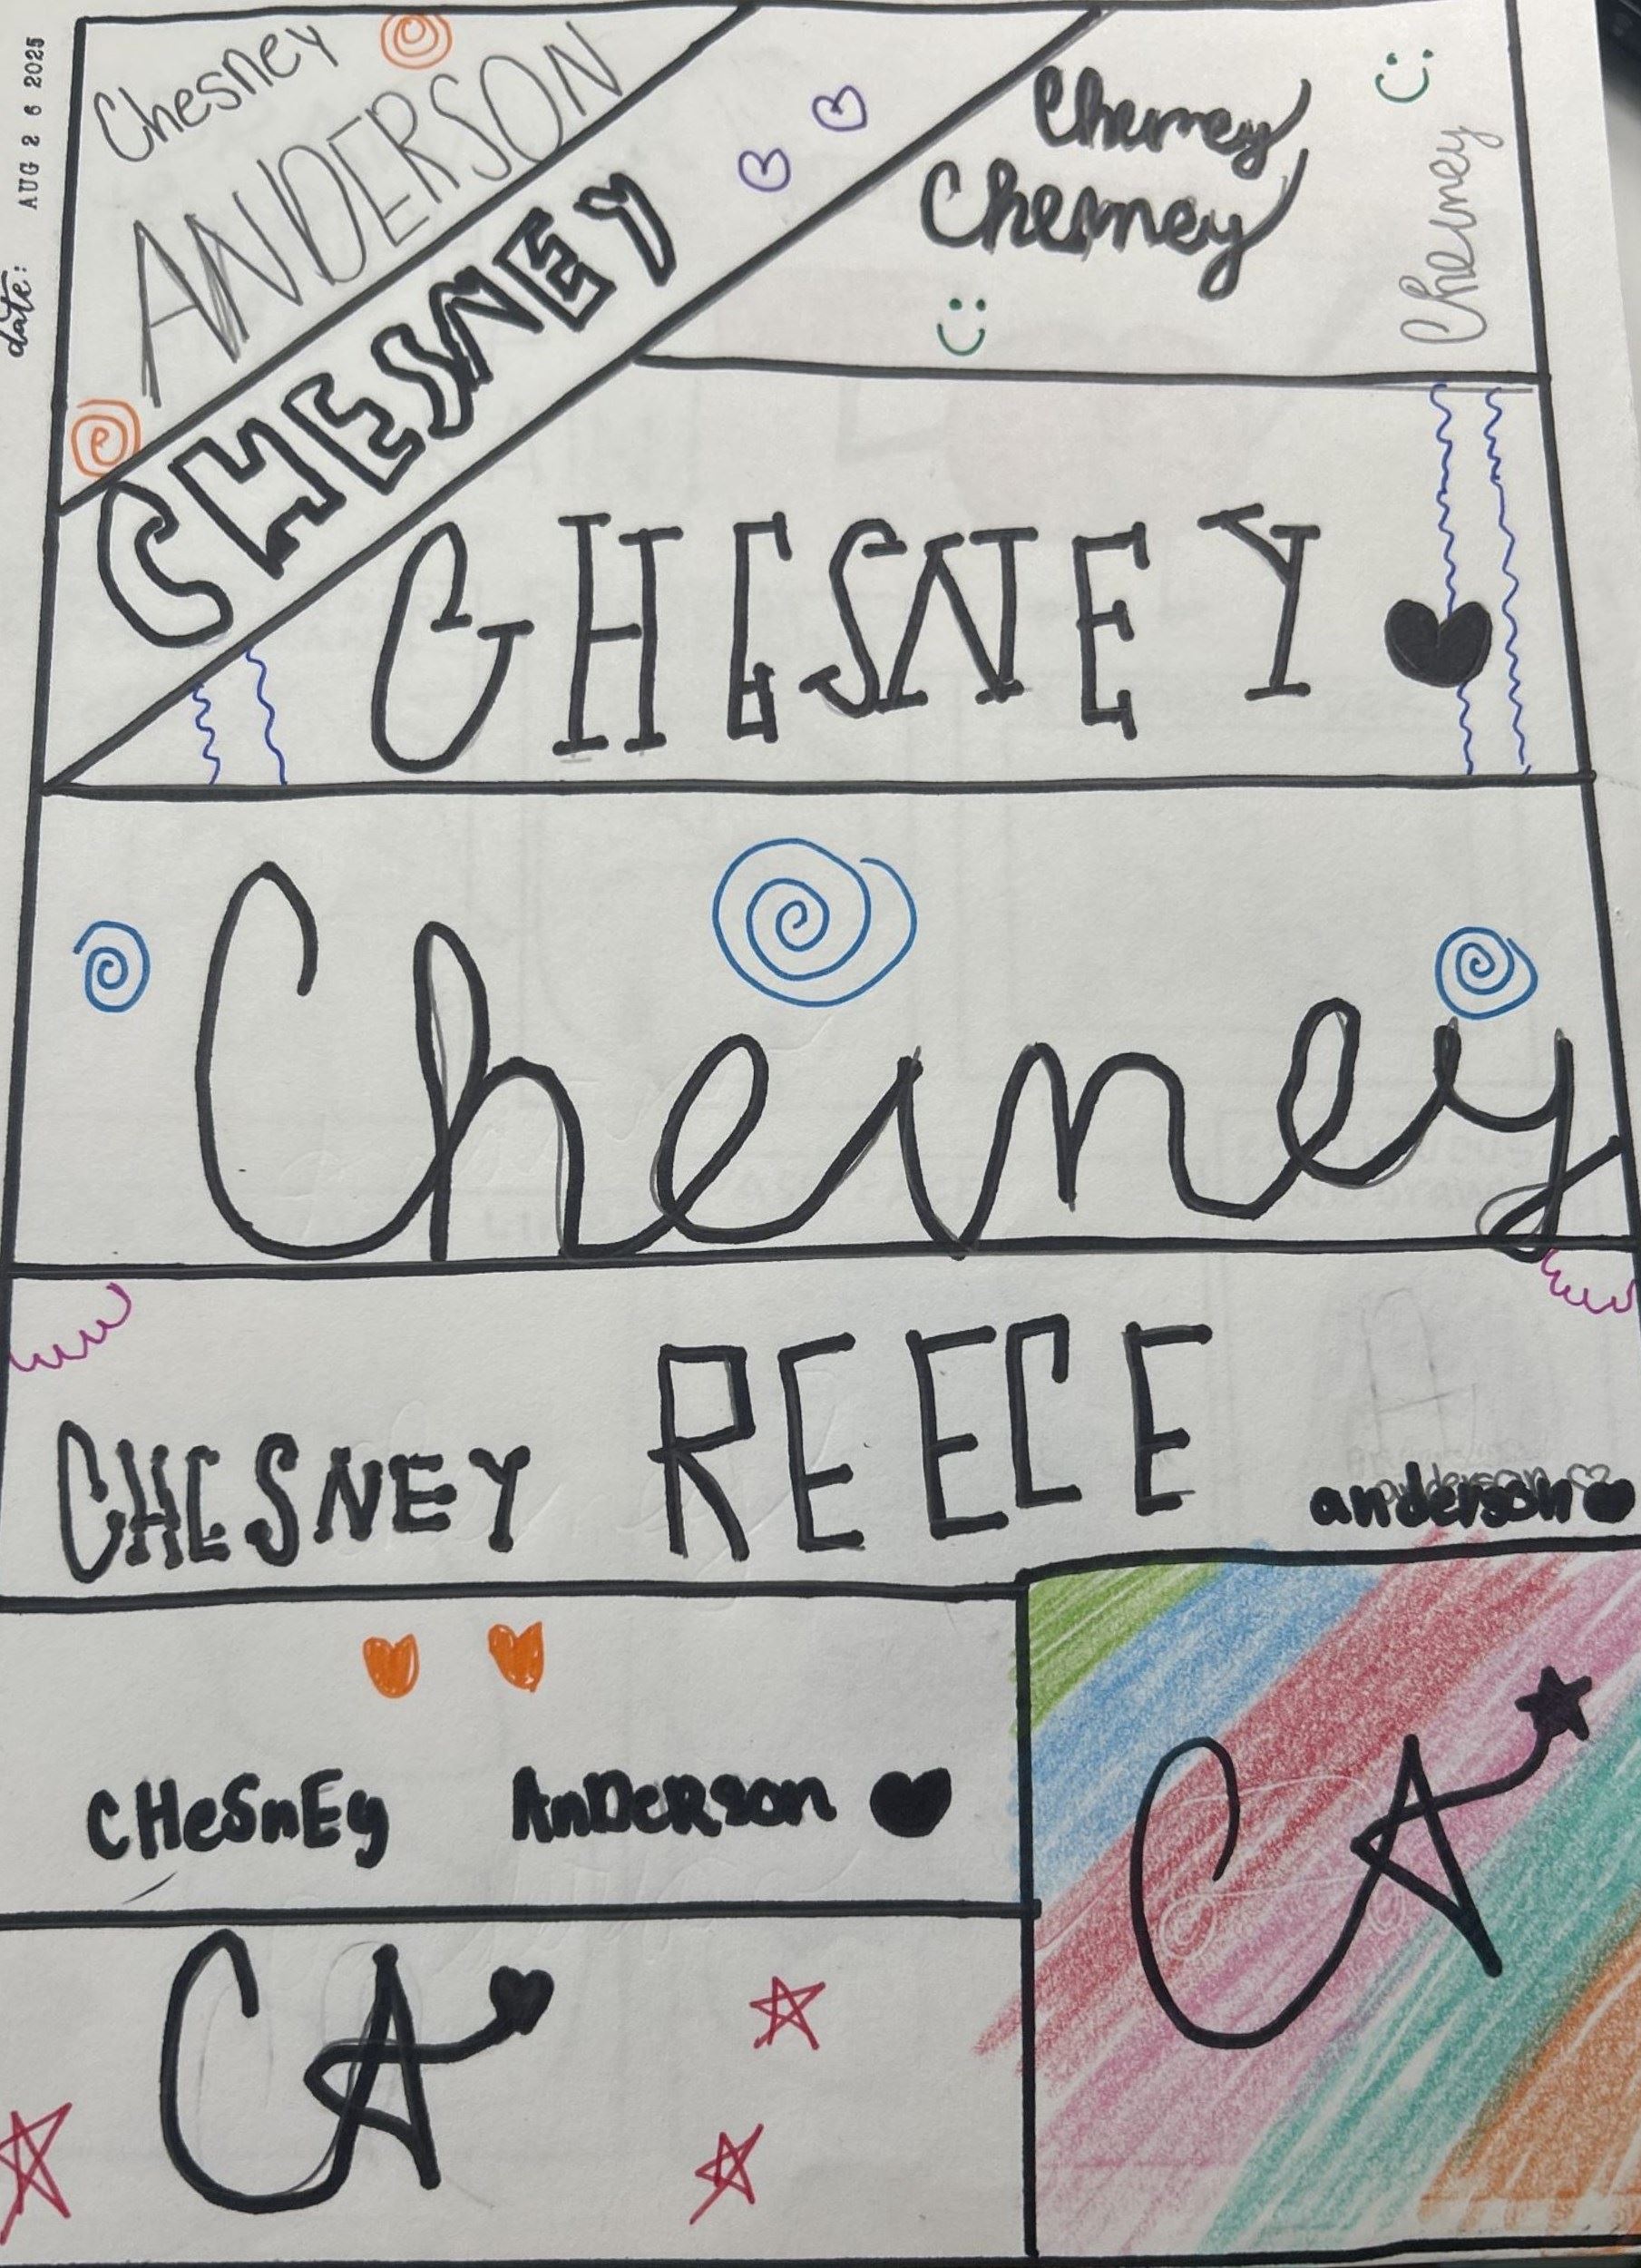 date: AUG 26 2025
Chesney
ANDERSON
CHESNEY
Chesney
Chesney
Chesney
CHESNEY
Chesney
CHESNEY REECE anderson
CHeSnEy AnDeRson
CA
CA